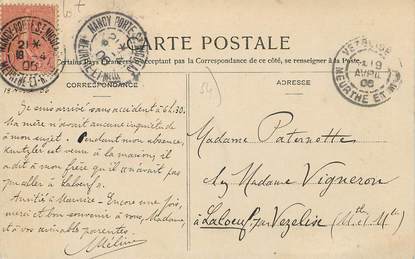 NANCY-PORTE ST NICOLAS
21 *
18 -4
06
MEURTHE-ET-M
NANCY PORTE ST NICOLAS
MEURTHE-ET-M
VEZELISE
19
AVRIL
06
MEURTHE ET M
CARTE POSTALE
Certains Pays Étrangers n'acceptant pas la Correspondance de ce côté, se renseigner à la Poste.
CORRESPONDANCE
ADRESSE
Je suis arrivé sans accident à 6h.30.
Ma mère n'avait aucune inquiétude
à mon sujet. Pendant mon absence,
est venu à la maison, il
a dit à mon frère qu'il n'avait pas
pu aller à Laloeuf.
Amitié à Maurice - Encore une fois,
merci et bon souvenir à vous, Madame,
et à vos aimables parentes.
Méline
Madame Paternotte
chez Madame Vigneron
à Laloeuf par Vezelise (Mthe et Mlle)